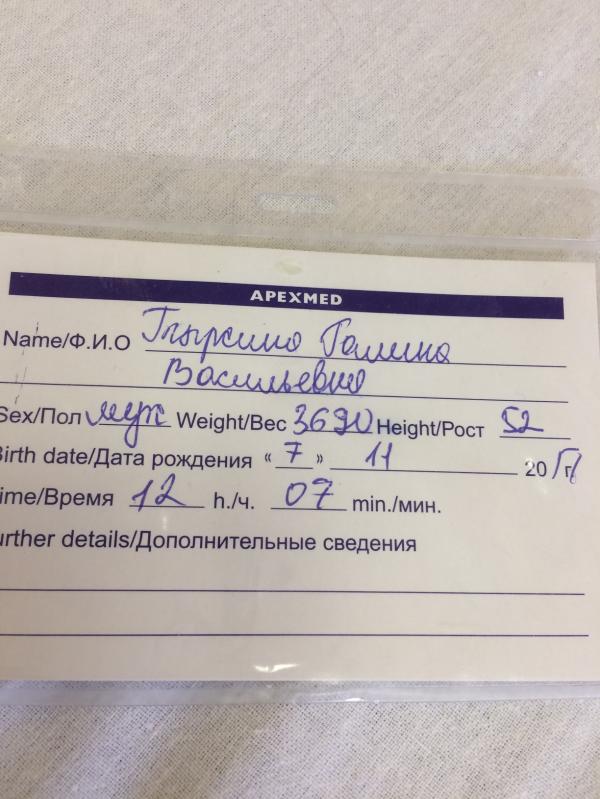 APEXMED
Name/Ф.И.О Галина
Васильевна
Sex/Пол муж Weight/Вес 3690 Height/Рост 52
Birth date/Дата рождения « 7 » 11 20 г
Time/Время 12 h./ч. 07 min./мин.
urther details/Дополнительные сведения